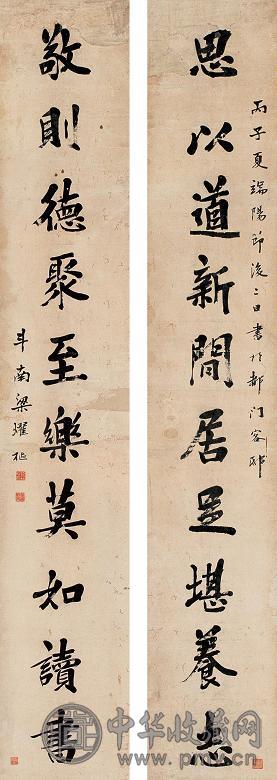 丙子夏端陽節後二日書於都門客邸
思以道新閒居足堪養志
敬則德聚至樂莫如讀書
斗南梁耀樞
中华收藏网